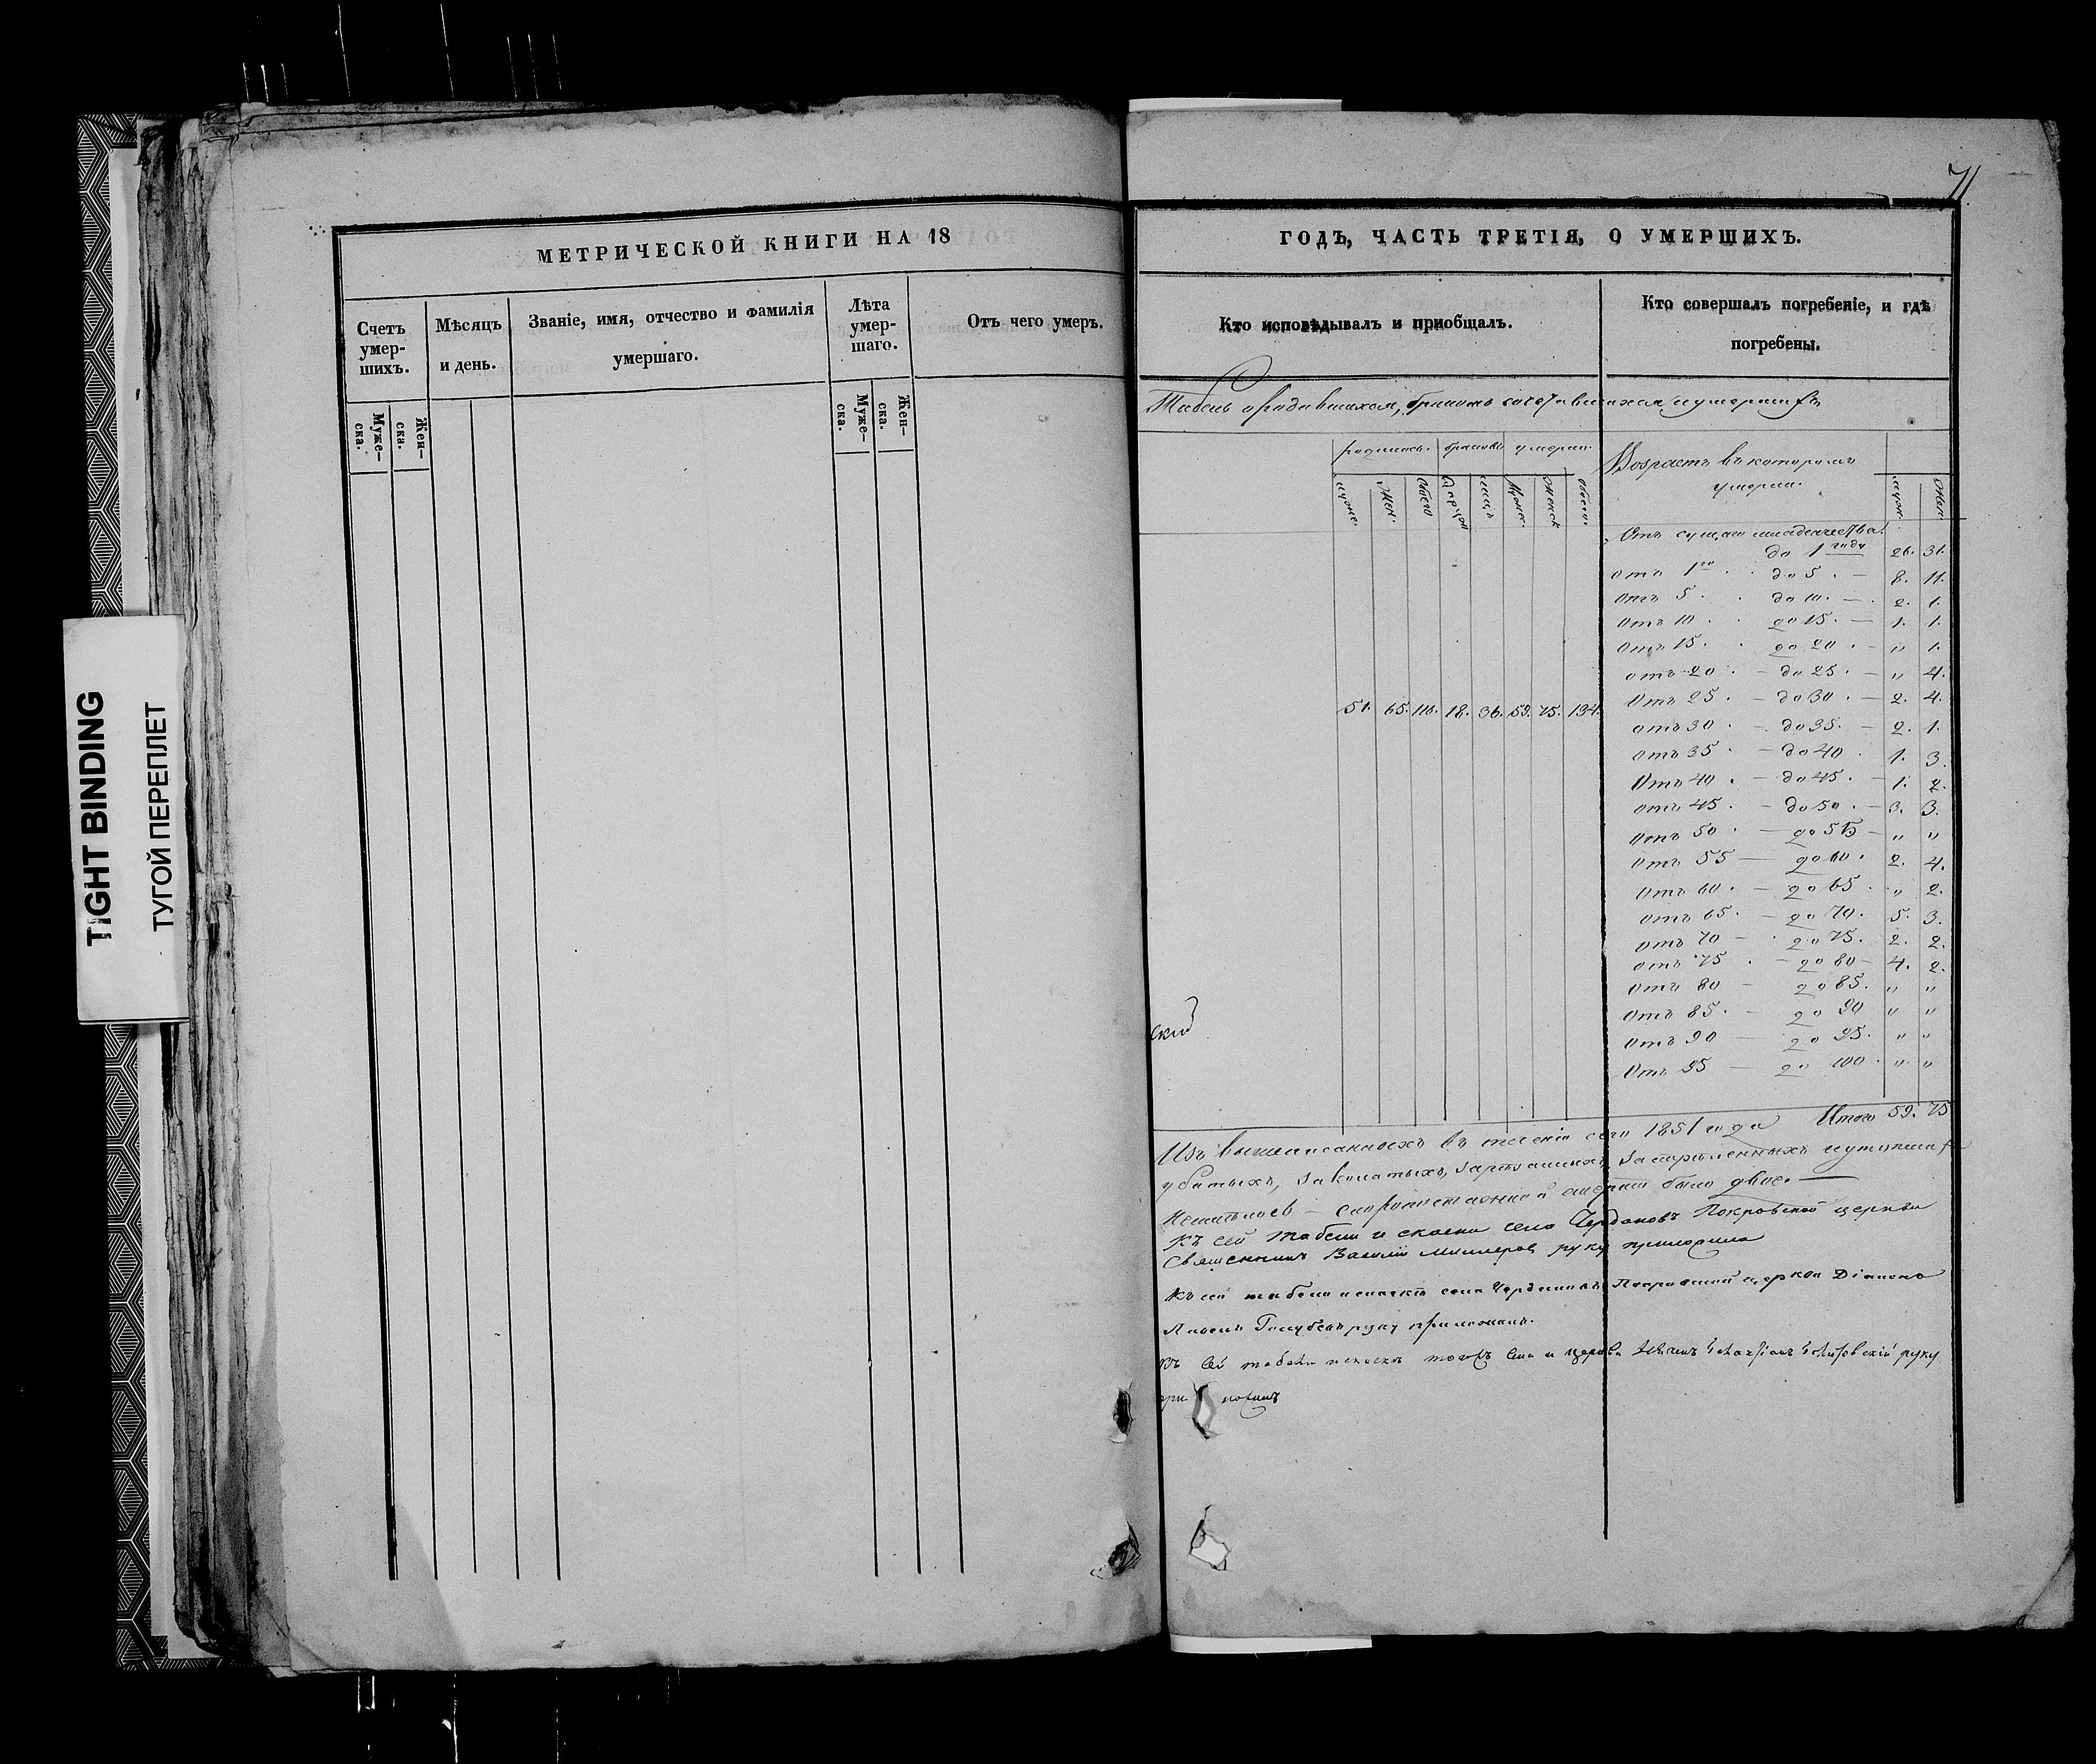 71
МЕТРИЧЕСКОЙ КНИГИ НА 18
Счетъ умер-шихъ.
Муже-ска.
Жен-ска.
Мѣсяцъ и день.
Званіе, имя, отчество и фамилія умершаго.
Лѣта умер-шаго.
Муже-ска.
Жен-ска.
Отъ чего умеръ.
ГОДЪ, ЧАСТЬ ТРЕТІЯ, О УМЕРШИХЪ.
Кто исповѣдывалъ и приобщалъ.
Кто совершалъ погребеніе, и гдѣ погребены.
Табель о родившихся, бракомъ сочетавшихся и умершихъ
родилось. браковъ умерло.
муже. Жен. Обоего паръ лицъ Мужс. Женск обоего.
51. 65. 116. 18. 36. 59. 75. 134.
Возрастъ въ которомъ
умерли.
муж. Жен.
Отъ сущаго младенчества
до 1 году 26. 31.
отъ 1го до 5. 8. 11.
Отъ 5. до 10. 2. 1.
Отъ 10. до 15. 1. 1.
Отъ 15. до 20. " 1.
отъ 20. до 25. " 4.
Отъ 25. до 30. 2. 4.
отъ 30. до 35. 2. 1.
отъ 35. до 40. 1. 3.
Отъ 40. до 45. 1. 2.
отъ 45. до 50. 3. 3.
Отъ 50. до 55 " "
Отъ 55 до 60. 2. 4.
Отъ 60. до 65. " 2.
отъ 65. до 70. 5. 3.
отъ 70 до 75. 2. 2.
отъ 75. до 80 4. 2.
Отъ 80 до 85. " "
Отъ 85. до 90 " "
Отъ 90 до 95. " "
Отъ 95 до 100. " "
Итого 59. 75
скій
Изъ вышеписанныхъ въ теченіи сего 1851 года
убитыхъ, заколатыхъ, застрѣленныхъ и утопших
Неимѣлось – скоропостижной было двое. –
Къ сей табели и скаски села Покровской церкви
Священникъ Василій руку приложилъ
Къ сей табели и скаски села Покровской церкви Діаконъ
Павелъ Голубевъ руку приложилъ.
Къ сей табели и скаскѣ тогожъ села и церкви руку
приложилъ
TIGHT BINDING
ТУГОЙ ПЕРЕПЛЕТ